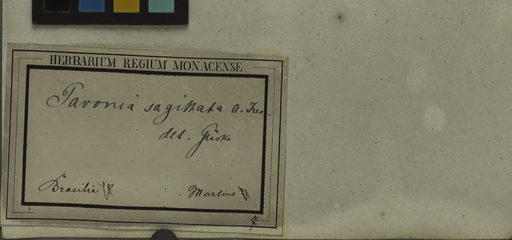 HERBARIUM REGIUM MONACENSE.
Pavonia sagittata A. 
det. Gürke
Brasilia Martius